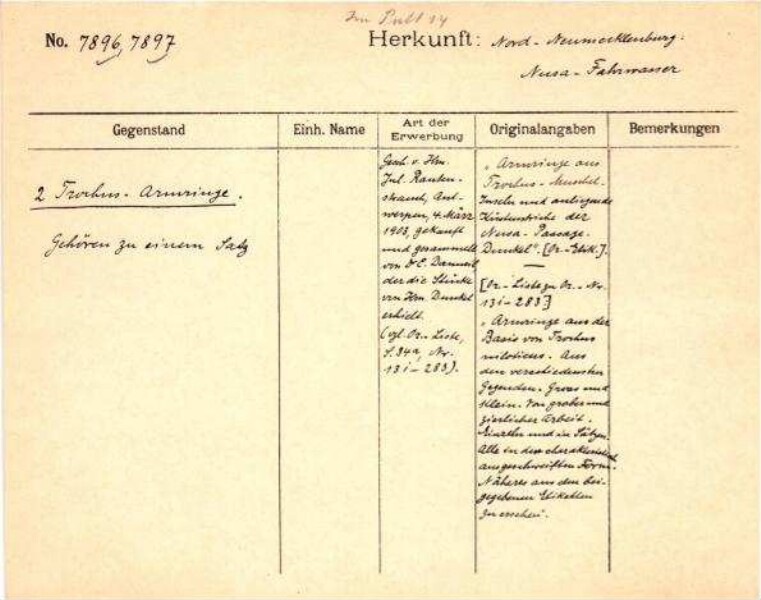 Im Pult 14
No. 7896, 7897
Herkunft: Nord-Neumecklenburg:
Nusa-Fahrwasser
Gegenstand
Einh. Name
Art der
Erwerbung
Originalangaben
Bemerkungen
2 Trochus-Armringe.
Gehören zu einem Satz
Gesch. v. Hrn.
Jul. Rauten-
strauch, Ant-
werpen, 4. März
1903, gekauft
und gesammelt
von E. Danneil,
der die Stücke
von Hrn. Dunkel
erhielt.
(vgl. Or-Liste,
S. 34a, Nr.
13i-283).
„Armringe aus
Trochus-Muschel.
Inseln und anliegende
Küstenstriche der
Nusa-Passage.
Dunkel". [Or-Etik.].
[Or-Liste zu Or-Nr.
13i-283]
„Armringe aus der
Basis von Trochus
niloticus. Aus
den verschiedensten
Gegenden. Gross und
Klein. Von grober und
zierlicher Arbeit.
Einzeln und in Sätzen.
Alle in der charakteristisch
ausgeschweiften Form.
Näheres aus den bei-
gegebenen Etiketten
zu ersehen".